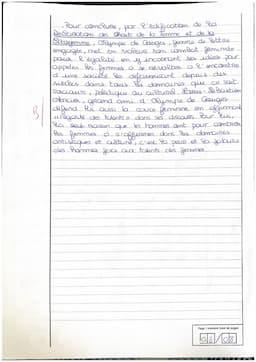 Pour conclure, par l'édification de la
Déclaration des Droits de la Femme et de la
Citoyenne, Olympe de Gouges, femme de lettres
engagée, met en valeur son combat féministe
pour l'égalité en y incorporant ses idées pour
appeler les femmes à se révolter à l'encontre
d'une société les défavorisant depuis des
siècles dans tous les domaines que ce soit
sociaux, politique ou culturel. Louis-Sébastien
Mercier, grand ami d'Olympe de Gouges
défend lui aussi la cause féminine en affirmant
inégalité de talents dans ses discours. Pour lui,
la seule raison que les hommes ont pour
les femmes à s'affirmer dans les domaines
artistiques et culturel, c'est la peur et la jalousie
des hommes face aux talents des femmes.
B